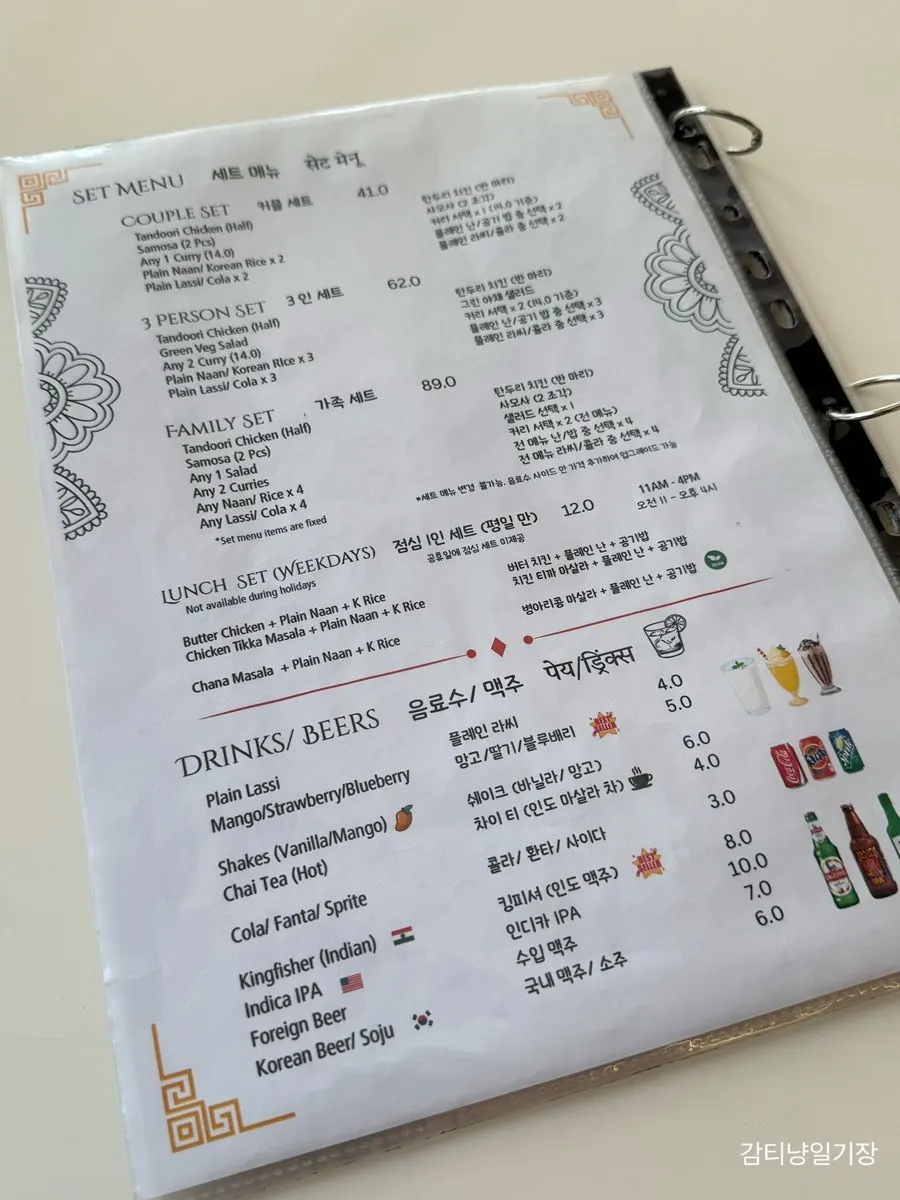 SET MENU 세트 메뉴 सेट मेनू
COUPLE SET 커플 세트 41.0
Tandoori Chicken (Half) 탄두리 치킨 (반 마리)
Samosa (2 Pcs) 사모사 (2 조각)
Any 1 Curry (14.0) 커리 서택 x 1 (14.0 기준)
Plain Naan/ Korean Rice x 2 플레인 난/공기 밥 중 선택 x 2
Plain Lassi/ Cola x 2 플레인 라씨/콜라 중 선택 x 2
3 PERSON SET 3 인 세트 62.0
Tandoori Chicken (Half) 탄두리 치킨 (반 마리)
Green Veg Salad 그린 야채 샐러드
Any 2 Curry (14.0) 커리 서택 x 2 (14.0 기준)
Plain Naan/ Korean RIce x 3 플레인 난/공기 밥 중 선택 x 3
Plain Lassi/ Cola x 3 플레인 라씨/콜라 중 선택 x 3
FAMILY SET 가족 세트 89.0
Tandoori Chicken (Half) 탄두리 치킨 (반 마리)
Samosa (2 Pcs) 사모사 (2 조각)
Any 1 Salad 샐러드 선택 x 1
Any 2 Curries 커리 서택 x 2 (전 메뉴)
Any Naan/ Rice x 4 전 메뉴 난/밥 중 선택 x 4
Any Lassi/ Cola x 4 전 메뉴 라씨/콜라 중 선택 x 4
*Set menu items are fixed *세트 메뉴 변경 불가능. 음료수 사이드 만 가격 추가하여 업그레이드 가능
LUNCH SET (WEEKDAYS) 점심 1인 세트 (평일 만) 12.0 11AM - 4PM
Not available during holidays 공휴일에 점심 세트 미제공 오전 11 - 오후 4시
Butter Chicken + Plain Naan + K Rice 버터 치킨 + 플레인 난 + 공기밥
Chicken Tikka Masala + Plain Naan + K Rice 치킨 티까 마살라 + 플레인 난 + 공기밥
Chana Masala + Plain Naan + K Rice 병아리콩 마살라 + 플레인 난 + 공기밥
DRINKS/ BEERS 음료수/ 맥주 पेय/ड्रिंक्स
Plain Lassi 플레인 라씨 4.0
Mango/Strawberry/Blueberry 망고/딸기/블루베리 5.0
Shakes (Vanilla/Mango) 쉐이크 (바닐라/ 망고) 6.0
Chai Tea (Hot) 차이 티 (인도 마살라 차) 4.0
Cola/ Fanta/ Sprite 콜라/ 환타/ 사이다 3.0
Kingfisher (Indian) 킹피셔 (인도 맥주) 8.0
Indica IPA 인디카 IPA 10.0
Foreign Beer 수입 맥주 7.0
Korean Beer/ Soju 국내 맥주/ 소주 6.0
감티냥일기장